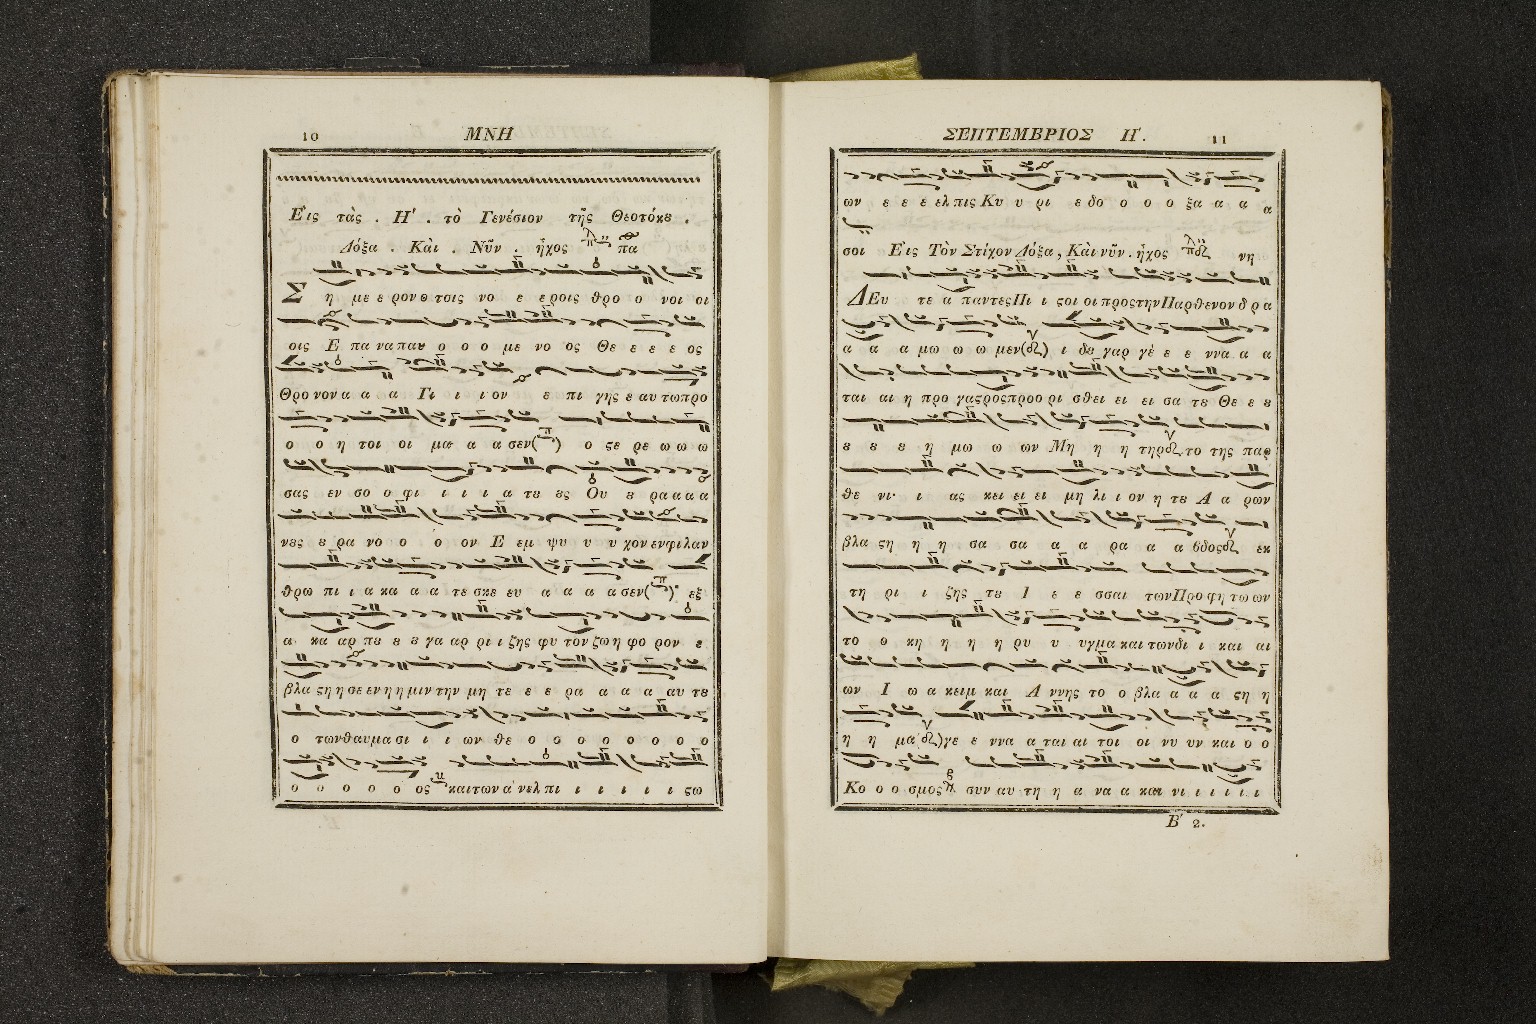 10 ΜΝΗ
Εἰς τὰς . Η΄ . τὸ Γενέσιον τῆς Θεοτόκȣ .
Δόξα . Καὶ . Νῦν . ἦχος πα
Σ η με ε ρον ο τοις νο ε ε ροις θρο ο νοι οι
οις Ε πα να παυ ο ο ο με νο ος Θε ε ε ε ος
Θρο νον α α α Γι ι ι ον ε πι γης ε αυ τω προ
ο ο η τοι οι μα α α σεν( ) ο ςε ρε ω ω ω
σας εν σο ο φι ι ι ι α τȣ ȣς Ου ȣ ρα α α α
νȣς ȣ ρα νο ο ο ον Ε εμ ψυ υ υ χον εν φιλαν
θρω πι ι α κα α α τε σκε ευ α α α α σεν( ) εξ
α κα αρ πȣ ȣ ȣ γα αρ ρι ι ζης φυ τον ζω η φο ρον ε
βλα ςη η σε εν η η μιν την μη τε ε ε ρα α α α αυ τȣ
ο των θαυ μα σι ι ι ι ων θε ο ο ο ο ο ο ο ο
ο ο ο ο ο ο ος και των α νελ πι ι ι ι ι ι ςω
ΣΕΠΤΕΜΒΡΙΟΣ Η΄. 11
ων ε ε ε ελ πις Κυ υ ρι ε δο ο ο ο ξα α α α
σοι Εἰς Τὸν Στίχον Δόξα, Καὶ νῦν . ἦχος νη
ΔΕυ τε α παντες Πι ι ςοι οι προς την Παρθενον δ ρ α
α α α μω ω ω μεν( ) ι δȣ γαρ γὲ ε ε ννα α α
ται αι η προ γας ρος προο ρι σθει ει ει σα τȣ Θε ε ȣ
ȣ ȣ ȣ η μω ω ων Μη η η τηρ το της παρ
θε νι ι ας κει ει ει μη λι ι ον η τȣ Α α ρων
βλα ςη η η σα σα α α ρα α α βδος εκ
τη ρι ι ζης τȣ Ι ε ε σσαι των Προ φη τω ων
το ο κη η η η ρυ υ υγμα και των δι ι και αι
ων Ι ω α κειμ και Α ννης το ο βλα α α α ςη η
η η μα( )γε ε ννα α ται αι τοι οι νυ υν και ο ο
Κο ο ο σμος συν αυ τη η α να α και νι ι ι ι ι
Β΄ 2.